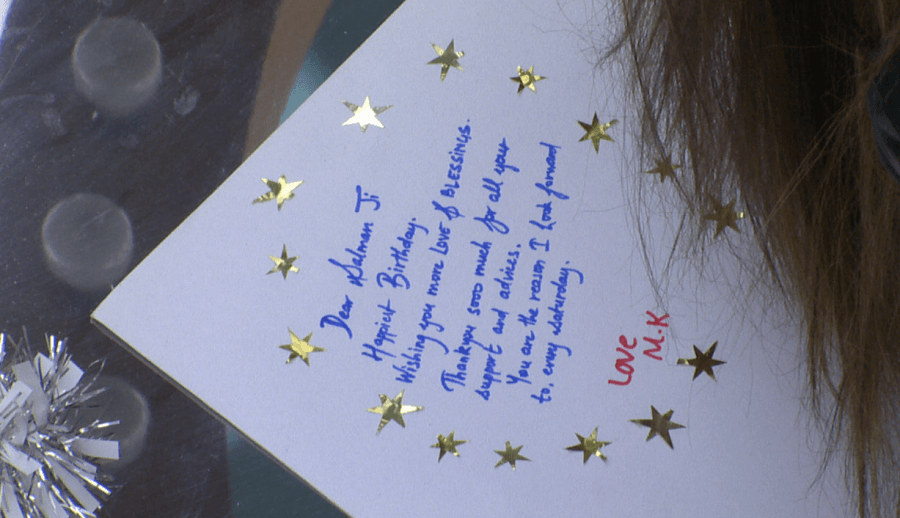 Dear Salman Ji
Happiest Birthday.
Wishing you more LOVE & BLESSINGS.
Thankyou sooo much for all your
support and advices.
You are the reason I look forward
to, every saturday.
LOVE
M.K